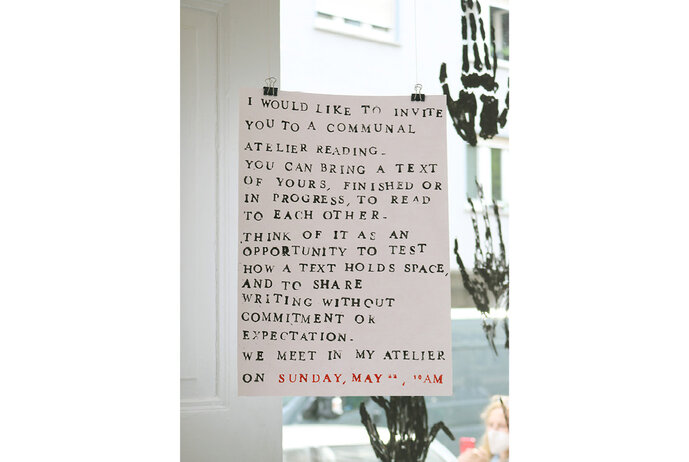 I WOULD LIKE TO INVITE
YOU TO A COMMUNAL
ATELIER READING.
YOU CAN BRING A TEXT
OF YOURS, FINISHED OR
IN PROGRESS, TO READ
TO EACH OTHER.
THINK OF IT AS AN
OPPORTUNITY TO TEST
HOW A TEXT HOLDS SPACE,
AND TO SHARE
WRITING WITHOUT
COMMITMENT OR
EXPECTATION.
WE MEET IN MY ATELIER
ON SUNDAY, MAY 22, 10AM